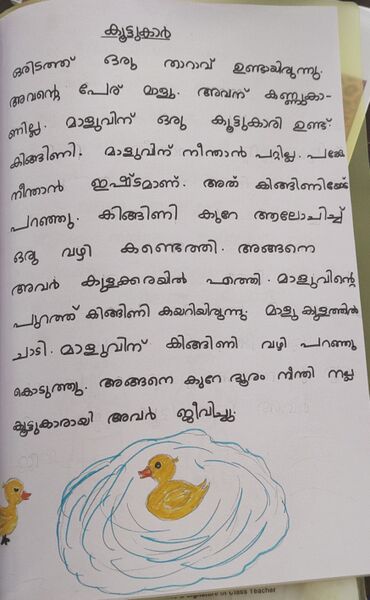 കൂട്ടുകാർ
ഒരിടത്ത് ഒരു താറാവ് ഉണ്ടായിരുന്നു.
അവന്റെ പേര് മാളു. അവന് കണ്ണുകാ-
ണില്ല. മാളുവിന് ഒരു കൂട്ടുകാരി ഉണ്ട്.
കിങ്ങിണി. മാളുവിന് നീന്താൻ പറ്റില്ല. പക്ഷേ
നീന്താൻ ഇഷ്ടമാണ്. അത് കിങ്ങിണിയോട്
പറഞ്ഞു. കിങ്ങിണി കുറേ ആലോചിച്ച്
ഒരു വഴി കണ്ടെത്തി. അങ്ങനെ
അവർ കുളക്കരയിൽ എത്തി. മാളുവിന്റെ
പുറത്ത് കിങ്ങിണി കയറിയിരുന്നു. മാളു കുളത്തിൽ
ചാടി. മാളുവിന് കിങ്ങിണി വഴി പറഞ്ഞു
കൊടുത്തു. അങ്ങനെ കുറേ ദൂരം നീന്തി നല്ല
കൂട്ടുകാരായി അവർ ജീവിച്ചു.
Signature of Class Teacher